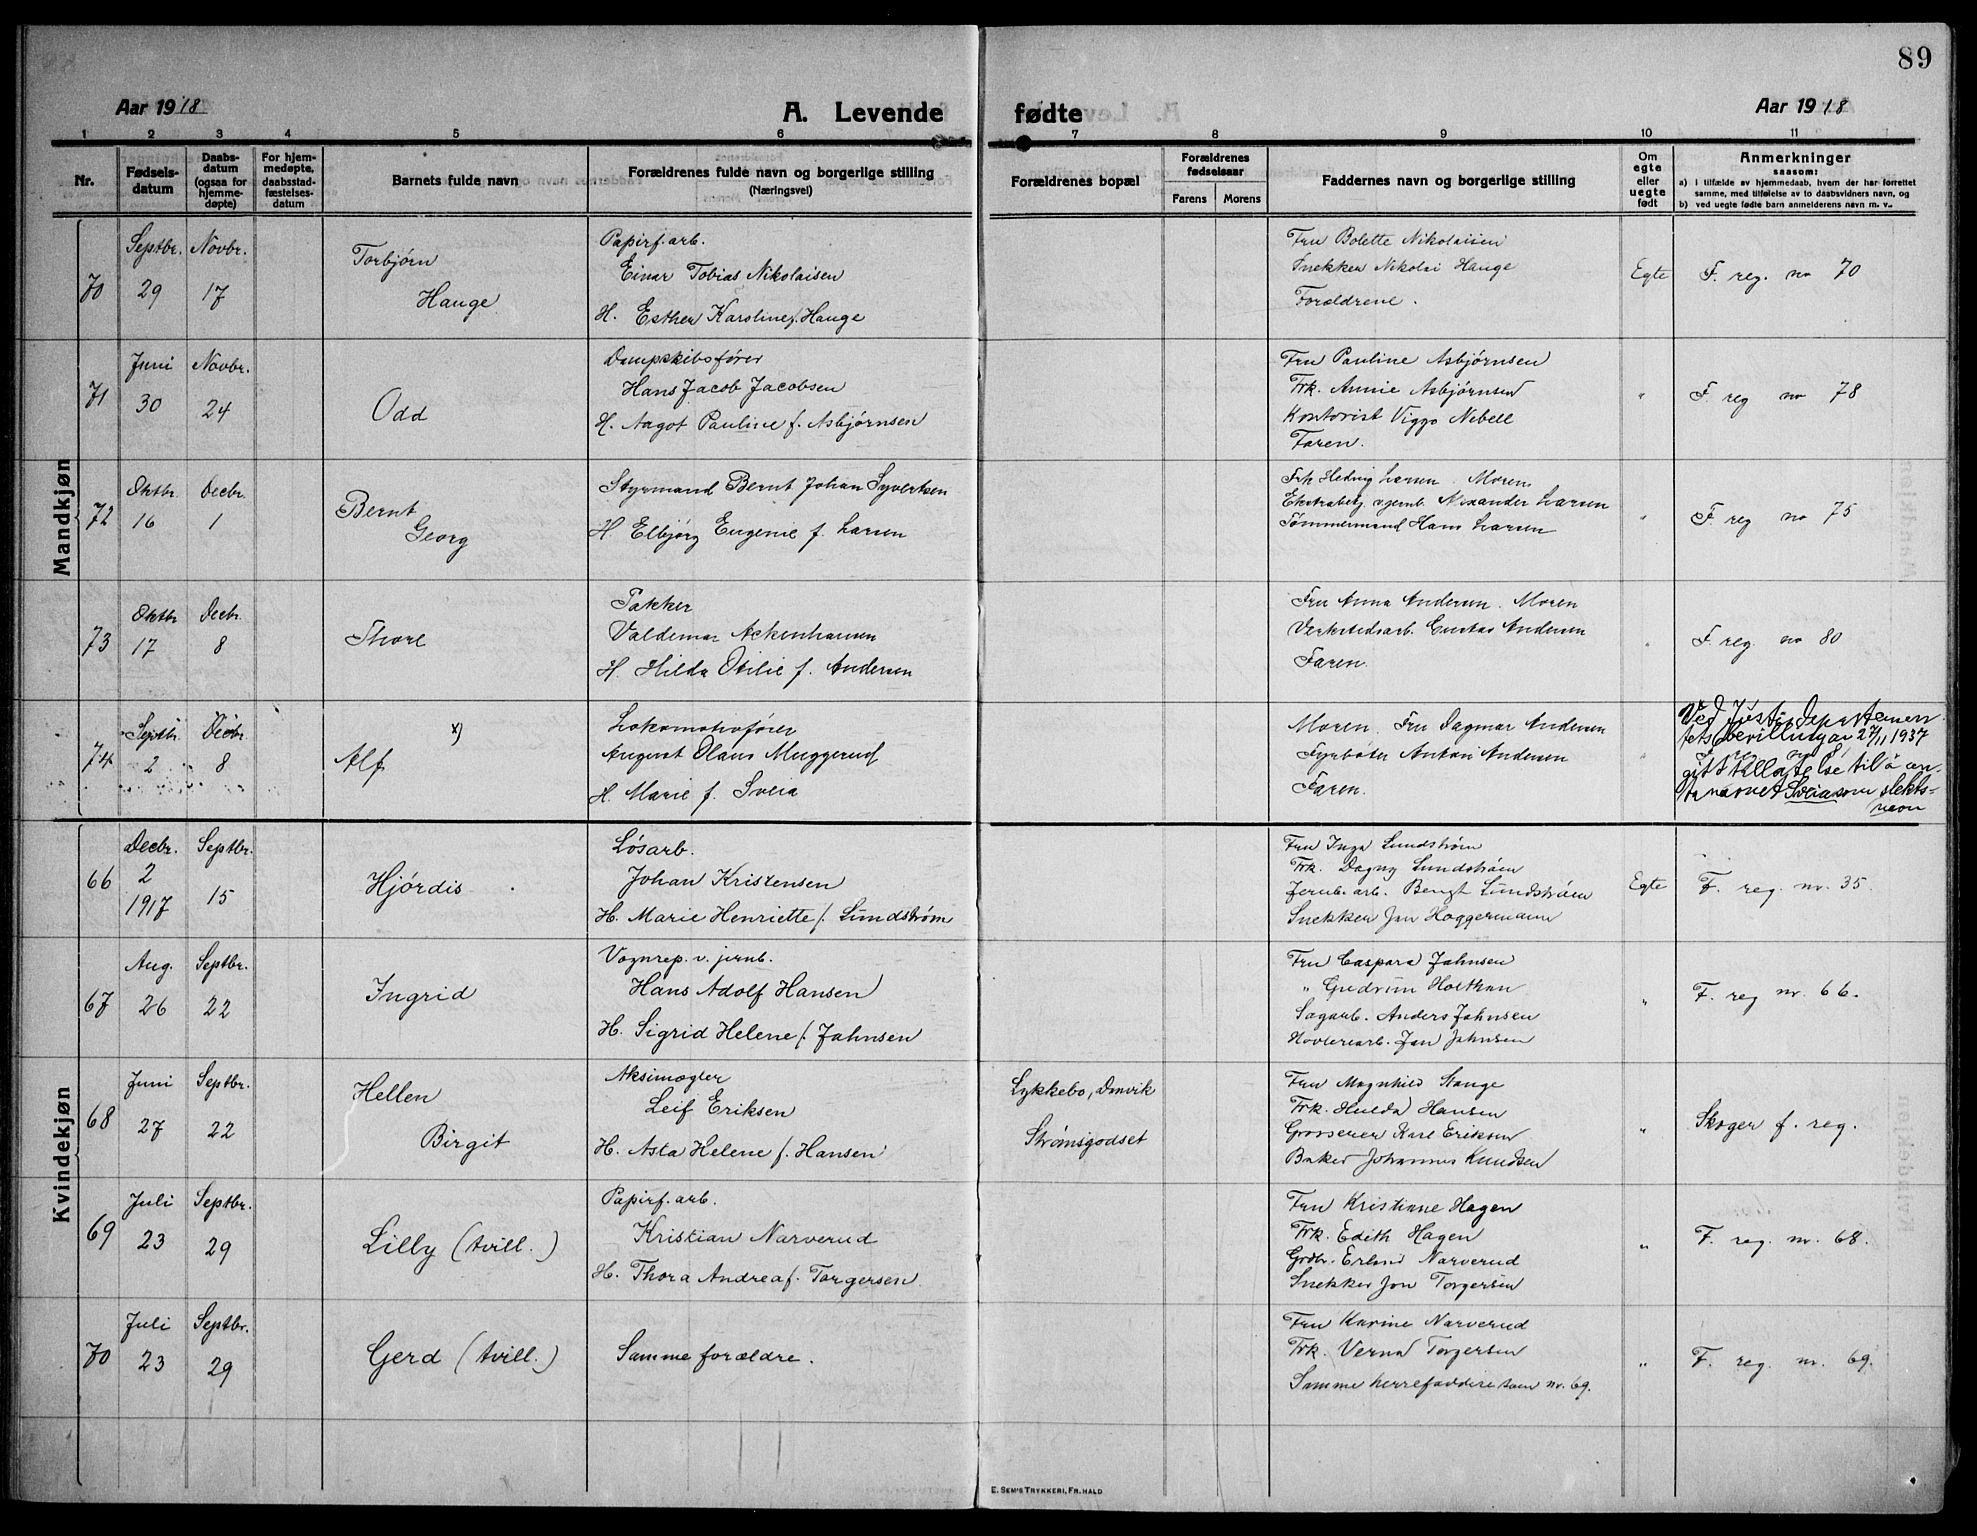 89
Aar 1918
A. Levende fødte
Aar 1918
1 2 3 4 5 6 7 8 9 10 11
Nr.
Fødsels-
datum
Daabs-
datum
(ogsaa for
hjemme-
døpte)
For hjem-
medøpte,
daabsstad-
fæstelses-
datum
Barnets fulde navn
Forældrenes fulde navn og borgerlige stilling
(Næringsvei)
Forældrenes bopæl
Forældrenes
fødselsaar
Farens Morens
Faddernes navn og borgerlige stilling
Om
egte
eller
uegte
født
Anmerkninger
saasom:
a) i tilfælde av hjemmedaab, hvem der har forrettet
samme, med tilføielse av to daabsvidners navn, og
b) ved uegte fødte barn anmelderens navn m. v..
Mandkjøn
70
Septbr.
29
Novbr.
17
Torbjørn
Hauge
Papirf. arb.
Einar Tobias Nikolaisen
H. Esther Karoline f. Hauge
Fru Bolette Nikolaisen
Snekker Nikolai Hauge
Forældrene.
Egte
F. reg. no 70
71
Juni
30
Novbr.
24
Odd
Dampskibsfører
Hans Jacob Jacobsen
H. Aagot Pauline f. Asbjørnsen
Fru Pauline Asbjørnsen
Frk. Annie Asbjørnsen
Kontorist Viggo Nebell
Faren.
"
F. reg no 78
72
Oktbr.
16
Decbr.
1
Bernt
Georg
Styrmand Bernt Johan Syvertsen
H. Elbjørg Eugenie f. Larsen
Frk Hedvig Larsen. Moren
Ekstrabetj. v. jernb. Alexander Larsen
Tømmermand Hans Larsen
"
F. reg no 75
73
Oktbr
17
Decbr.
8
Thore
Pakker
Valdemar Ackenhausen
H. Hilda Otilie f. Andersen
Fru Anna Andersen. Moren
Verkstedsarb. Gustav Andersen
Faren.
"
F. reg. no 80
74
Septbr.
2
Decbr.
8
Alf x)
Lokomotivfører
August Olaus Muggerud
H. Marie f. Sveia
Moren. Fru Dagmar Andersen
Fyrbøter Anton Andersen
Faren.
"
Ved Justis Departemen-
tets bevilling av 27/11 1937
gitt tillatelse til å an-
ta navnet Sveia som slekts-
navn
Kvindekjøn
66
Decbr.
2
1917
Septbr.
15
Hjørdis
Løsarb.
Johan Kristensen
H. Marie Henriette f. Lundstrøm
Fru Inga Lundstrøm
Frk. Dagny Lundstrøm
Jernb. arb. Bengt Lundstrøm
Snekker Jan Hoggermann
Egte
F. reg. nr. 35.
67
Aug.
26
Septbr.
22
Ingrid
Vognrep. v. jernb.
Hans Adolf Hansen
H. Sigrid Helene f. Jahnsen
Fru Caspara Jahnsen
" Gudrun Holtkan
Sagarb. Anders Jahnsen
Høvleriarb. Jan Jahnsen
"
F. reg nr. 66.
68
Juni
27
Septbr.
22
Hellen
Birgit
Aksimægler
Leif Eriksen
H. Asta Helene f. Hansen
Lykkebo, Danvik
Strømsgodset
Fru Magnhild Stange
Frk. Hulda Hansen
Grosserer Karl Eriksen
Baker Johannes Knudsen
"
Skoger f. reg.
69
Juli
23
Septbr.
29
Lilly (tvill.)
Papirf. arb.
Kristian Narverud
H. Thora Andrea f. Torgersen
Fru Kristiane Hagen
Frk. Edith Hagen
Grdbr. Erland Narverud
Snekker Jon Torgersen
"
F. reg. nr. 68.
70
Juli
23
Septbr.
29
Gerd (tvill.)
Samme forældre.
Fru Karine Narverud
Frk. Verna Torgersen
Samme herrefaddere som nr. 69.
"
F. reg. nr. 69.
E. SEM'S TRYKKERI, FR.HALD